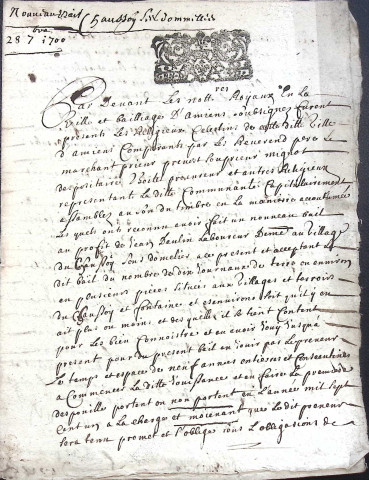 Nouveau bail
Chaussoy
28 7bre 1700
Par Devant Les nottres Royaux En La
Ville et bailliages D'Amiens soubsignes furent
presents Les Religieux Celestins de ditte Ville
d'amiens Comparants par Les Reverend pere Le
marchant prieur prevost souprieur mignot
despositaire procureur et autres Religieux
representant La ditte Communauté Capitulairement
assemblés au son du timbre en La maniere accoutumée
Les quels ont reconnu avoir fait un nouveau bail
au profit de Jean Laboureur Demt au village
du Chaussoy sous ace present et acceptant Le
dit bail du nombre de dix Journaux de terre ou environ
en plusieurs pieces situées aux villages et terroirs
du Chaussoy et fontaine et es environs soit qu'il y en
ait plus ou moins et des quelles il se tient Content
pour Les bien Connoistre et en avoir Jouy Jusqua
present pour du present bail en Jouir par Le preneur
Le temps et espace de neuf annees entieres et Consecutives
a Commencer La ditte Jouissance et en faire La premiere
despouille portant ou non portant en L'année mil sept
cent un a La charge et moienant que Le dit preneur
sera tenu promet et s'oblige sous L'obligations de